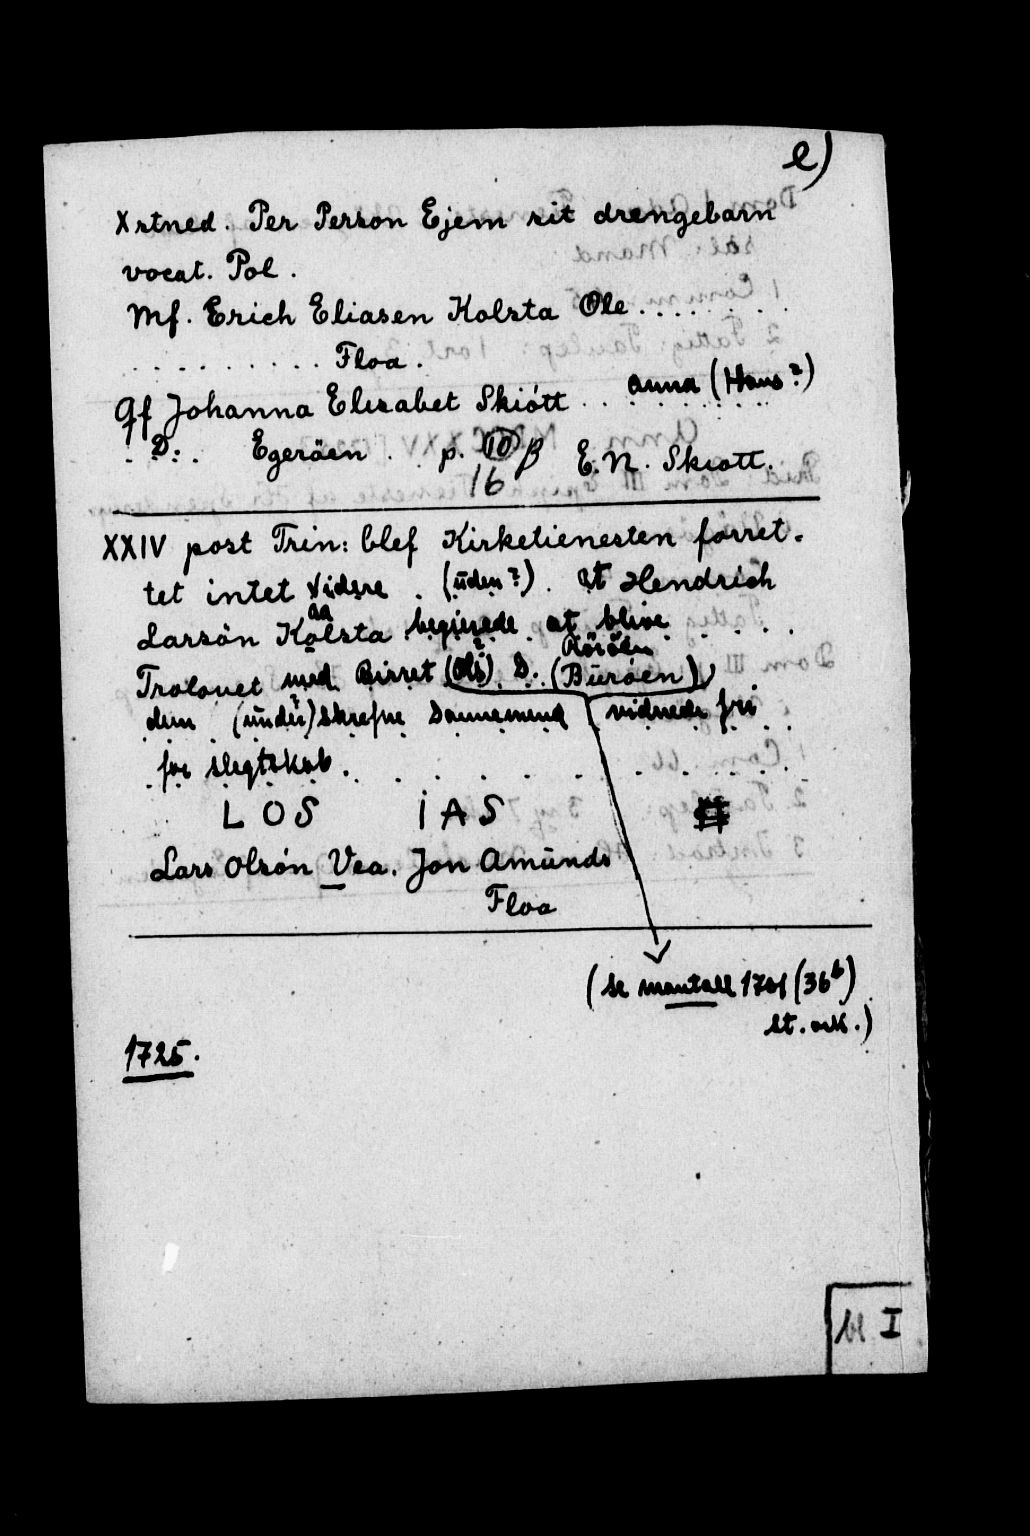 e)
Xstned. Per Person Ejem sit drængebarn
vocat. Pol.
Mf. Erich Eliasen Kolsta Ole . . . . . . . .
. . . . . . . . . . Floa.
qf Johanna Elisabet Skiött . . anna (Hans?)
. D: . Egeröen . . p. 10 β E. N. Skiött.
16
XXIV post Trin: blef Kirketienesten forret-
tet intet vidsre . (uden?) . At Hendrich
aa
Larsön Kolsta begierede at blive . . . .
Rörö
Trolovet med Birret (Ols?) D. (Buröen)
dem (under?)skrefne Dannemend vidnede fri
for slegtskab . . . . . . . .
L O S I A S #
Lars Olsön Vea. Jon Amunds
Floa
(se mantall 1701 (36b)
st. ark.)
1725.
bl I